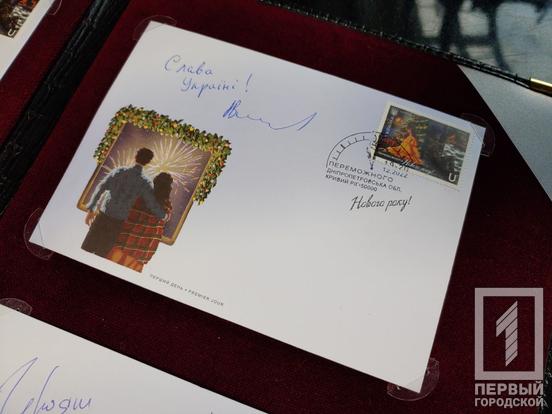 Слава
Україні!
14-20
12.2022
ПЕРЕМОЖНОГО
ДНІПРОПЕТРОВСЬКА ОБЛ.
КРИВИЙ РІГ•50000
Нового року!
ПЕРШИЙ ДЕНЬ • PREMIER JOUR
1
ПЕРВЫЙ
ГОРОДСКОЙ